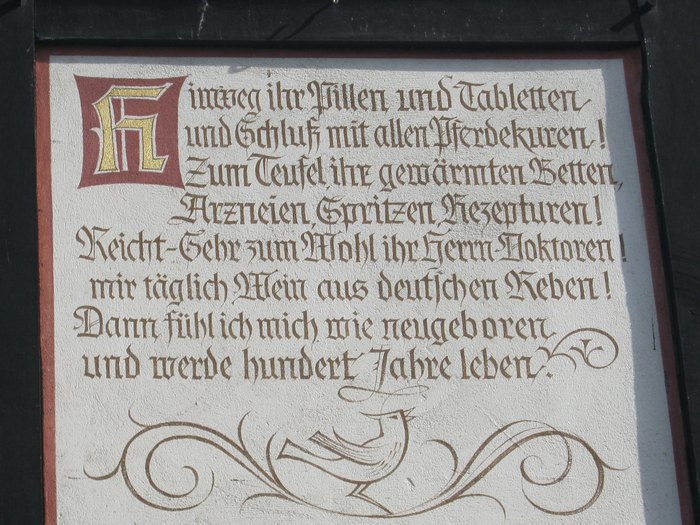 Hinweg ihr Pillen und Tabletten
und Schluß mit allen Pferdekuren!
Zum Teufel, ihr gewärmten Betten,
Arzneien, Spritzen, Rezepturen!
Reicht-Sehr zum Wohl ihr Herrn Doktoren!
mir täglich Wein aus deutschen Reben!
Dann fühl ich mich wie neugeboren
und werde hundert Jahre leben.